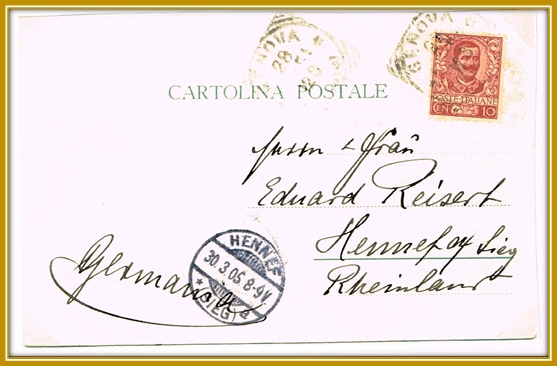 GENOVA
28
GENOVA
POSTE ITALIANE
CEN 10
CARTOLINA POSTALE
Herrn & Frau
Eduard Reisert
Hennef a/ Sieg
Rheinland
Germania
HENNEF
30.3.05.8-9V.
* (SIEG) a